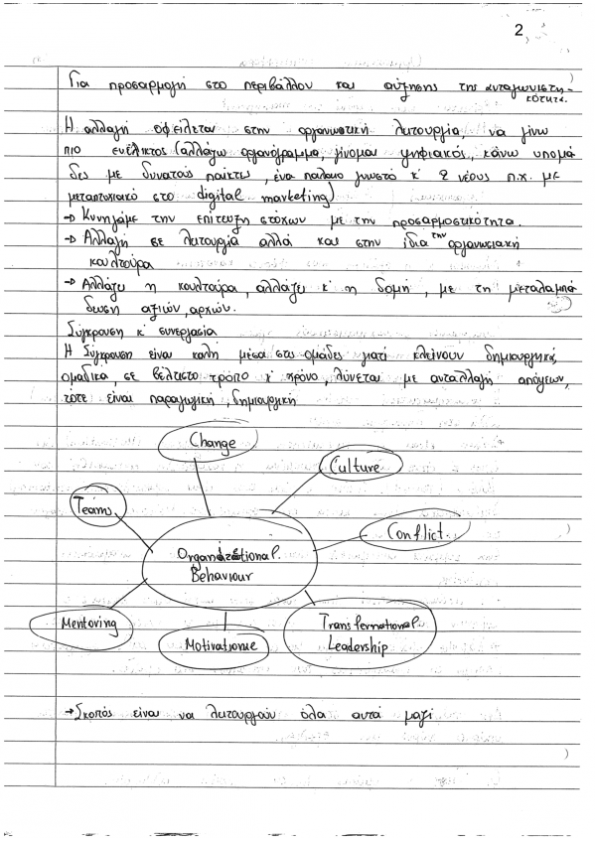 2
Για προσαρμογή στο περιβάλλον και αύξησης της ανταγωνιστη-
κότητα.
Η αλλαγή οφείλεται στην οργανωτική λειτουργία, να γίνω
πιο ευέλικτος (αλλάζω οργανόγραμμα, γίνομαι ψηφιακός, κάνω υπομά
δες με δυνατούς παίκτες, ένα παλαιό γνωστό κ' 2 νέους π.χ. με
μεταπτυχιακό στο digital marketing)
→ Κυνηγάμε την επίτευξη στόχων με την προσαρμοστικότητα.
→ Αλλαγή σε λειτουργία αλλά και στην ίδια την οργανωσιακή
κουλτούρα
→ Αλλάζει η κουλτούρα, αλλάζει κ' η δομή, με τη μεταλαμπά
δωση αξιών, αρχών.
Σύγκρουση κ' συνεργασία
Η Σύγκρουση είναι καλή μέσα στις ομάδες γιατί κλείνουν δημιουργικά,
ομαδικά, σε βέλτιστο τρόπο κ' χρόνο, λύνεται με ανταλλαγή απόψεων,
τότε είναι παραγωγική, δημιουργική
Change
Culture
Teams
Conflict.
Organizational.
Behaviour
Mentoring
Motivation
Transfernational.
Leadership
→ Σκοπός είναι να λειτουργούν όλα αυτά μαζί